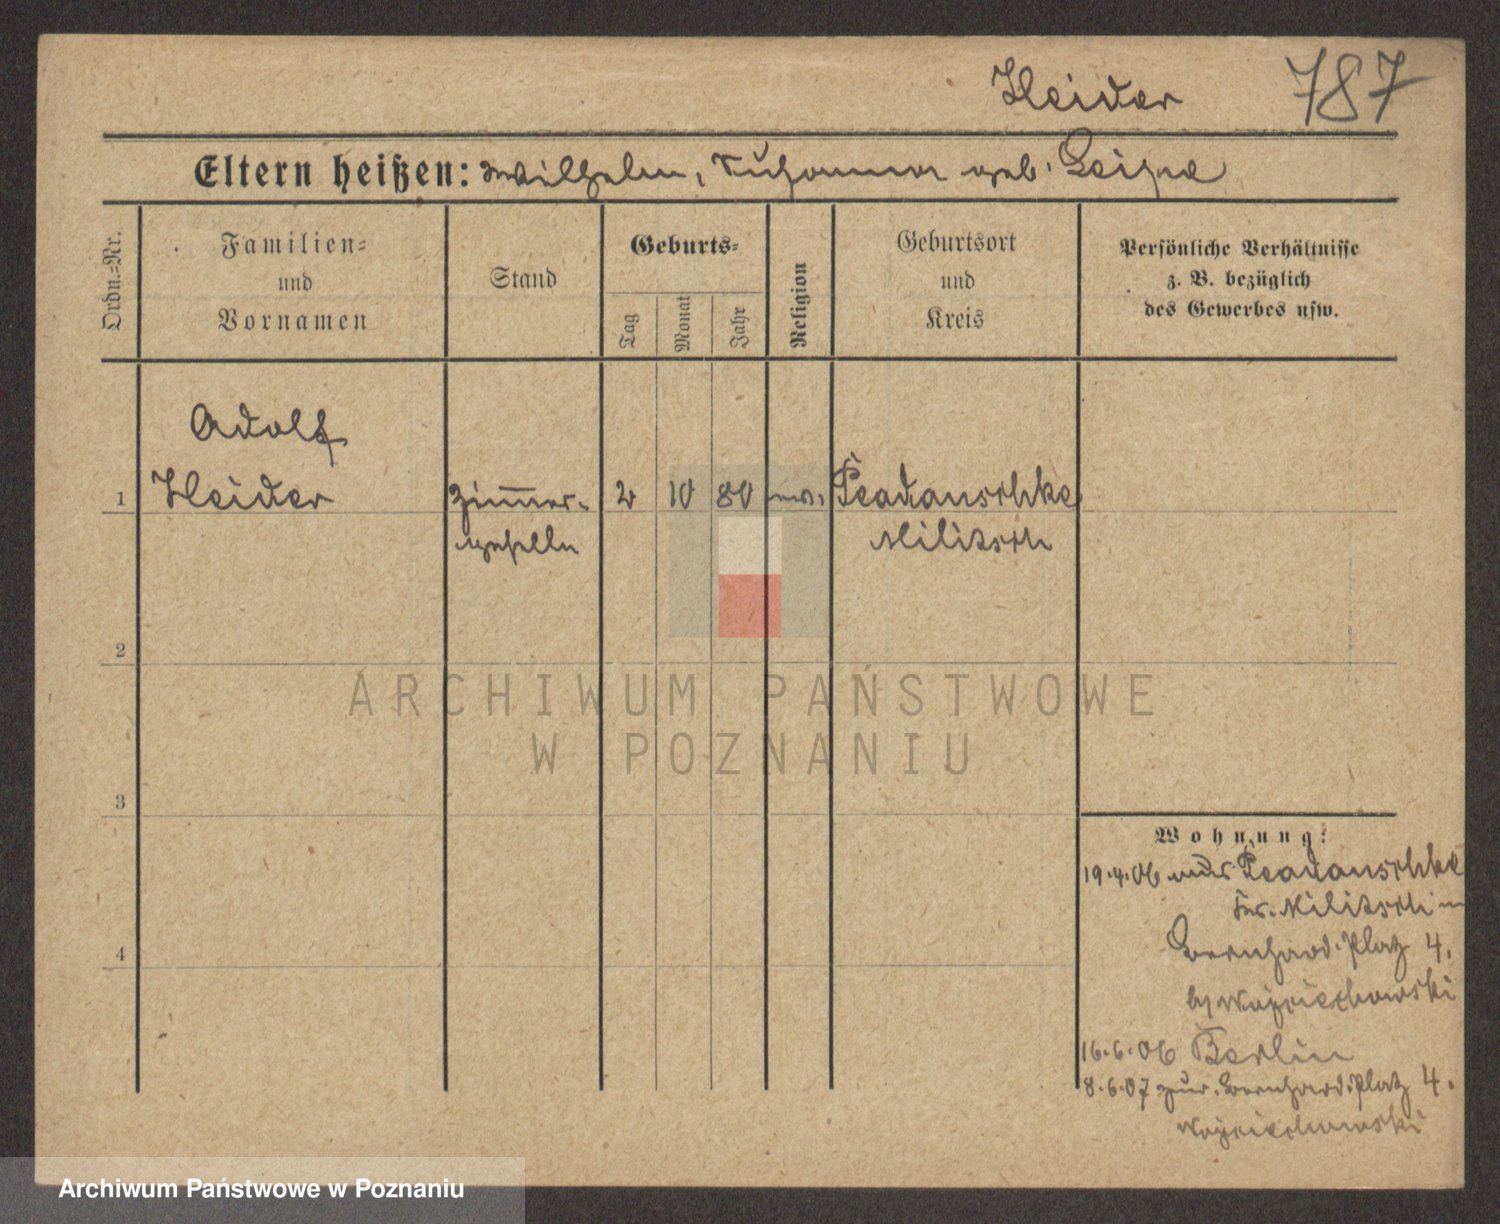 Heider 787
Eltern heißen: Wilhelm, Susanna geb. Leipe
Ordn.-Nr.
Familien-
und
Vornamen
Stand
Geburts-
Tag
Monat
Jahr
Religion
Geburtsort
und
Kreis
Persönliche Verhältnisse
z. B. bezüglich
des Gewerbes usw.
Adolf
1 Heider Zimmer- 2 10 80 ev. Peadauschke
geselle Militsch
2
3
4
Wohnung:
19.4.06 aus Peadauschke
Kr. Militsch
Bernhard. Platz 4.
b/ Wojciechowski
16.6.06 Berlin
8.6.07 zur. Bernhard. Platz 4.
Wojciechowski
ARCHIWUM PAŃSTWOWE
W POZNANIU
Archiwum Państwowe w Poznaniu